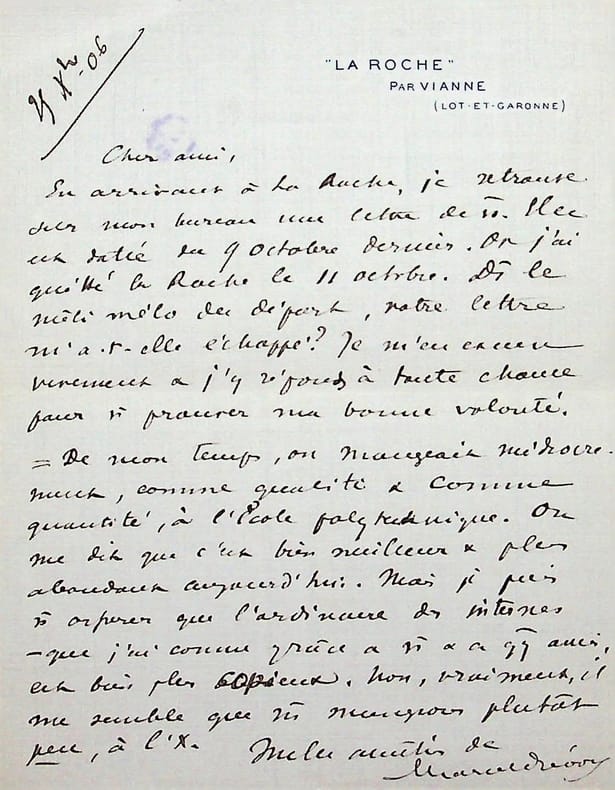 "LA ROCHE"
PAR VIANNE
(LOT-ET-GARONNE)
Xbre 06
Cher ami,
En arrivant à La Roche, je retrouve
sur mon bureau une lettre de vs. Elle
est datée du 9 octobre dernier. Or j'ai
quitté la Roche le 11 octobre. Ds le
méli mélo du départ, votre lettre
m'a-t-elle échappé? Je m'en excuse
vivement & j'y réponds à toute chance
pour vs prouver ma bonne volonté.
= De mon temps, on mangeait médiocre-
ment, comme qualité & comme
quantité, à l'École polytechnique. On
me dit que c'est bien meilleur & plus
abondant aujourd'hui. Mais je puis
vs assurer que l'ordinaire des internes
- que j'ai connu grâce à vs & à qq amis,
est bien plus copieux. Non, vraiment, il
me semble que ns mangions plutôt
peu, à l'X.
Mille amitiés de
Marcel Prévost